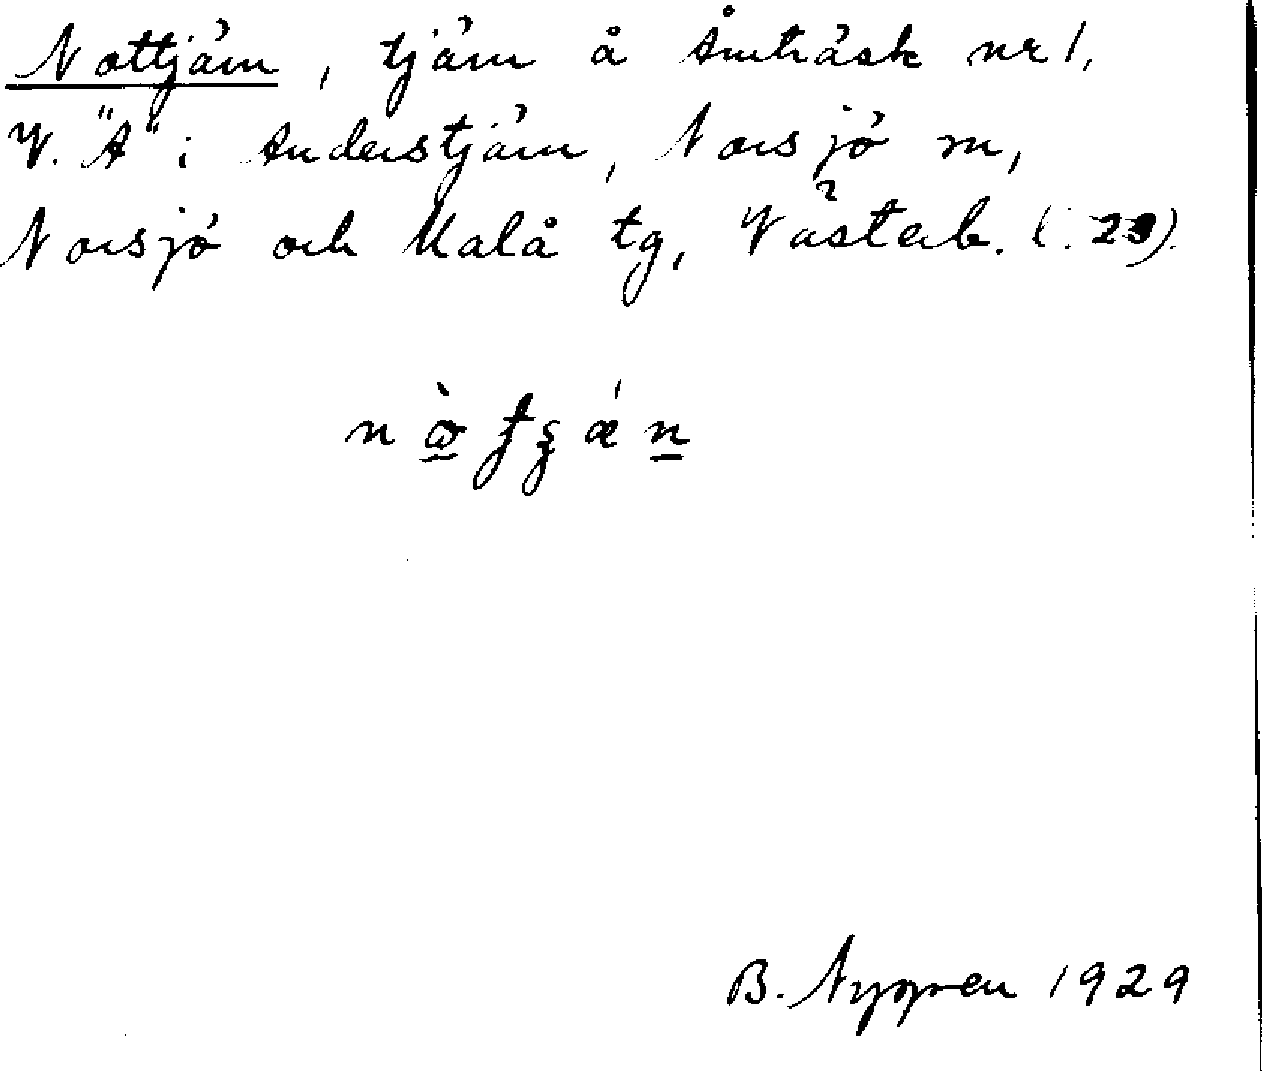 Nottjärn, tjärn å Åmträsk nr 1,
V. "A" i Anderstjärn, Norsjö sn,
Norsjö och Malå tg, Västerb. (: 29).
B. Nygren 1929